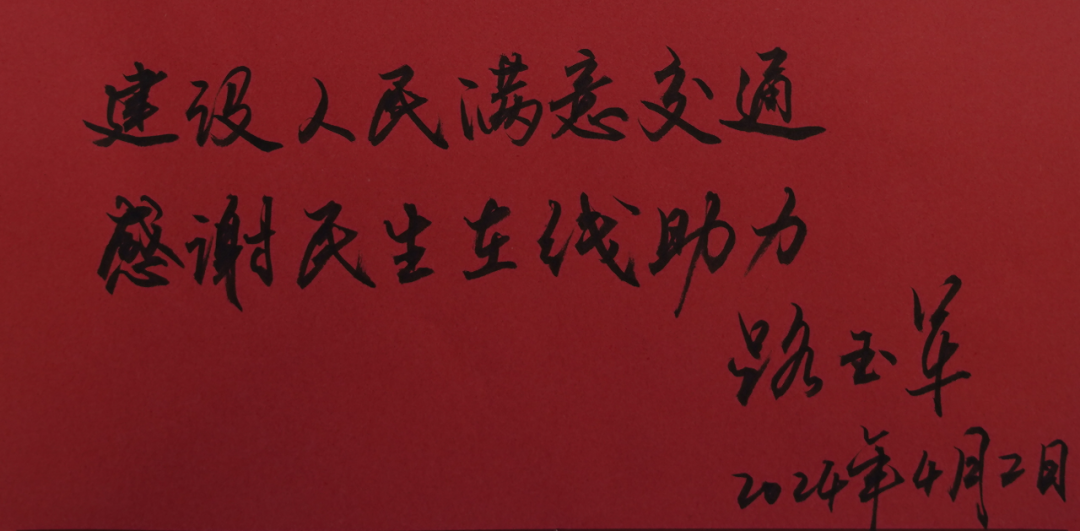 建设人民满意交通
感谢民生在线助力
路玉军
2024年4月2日